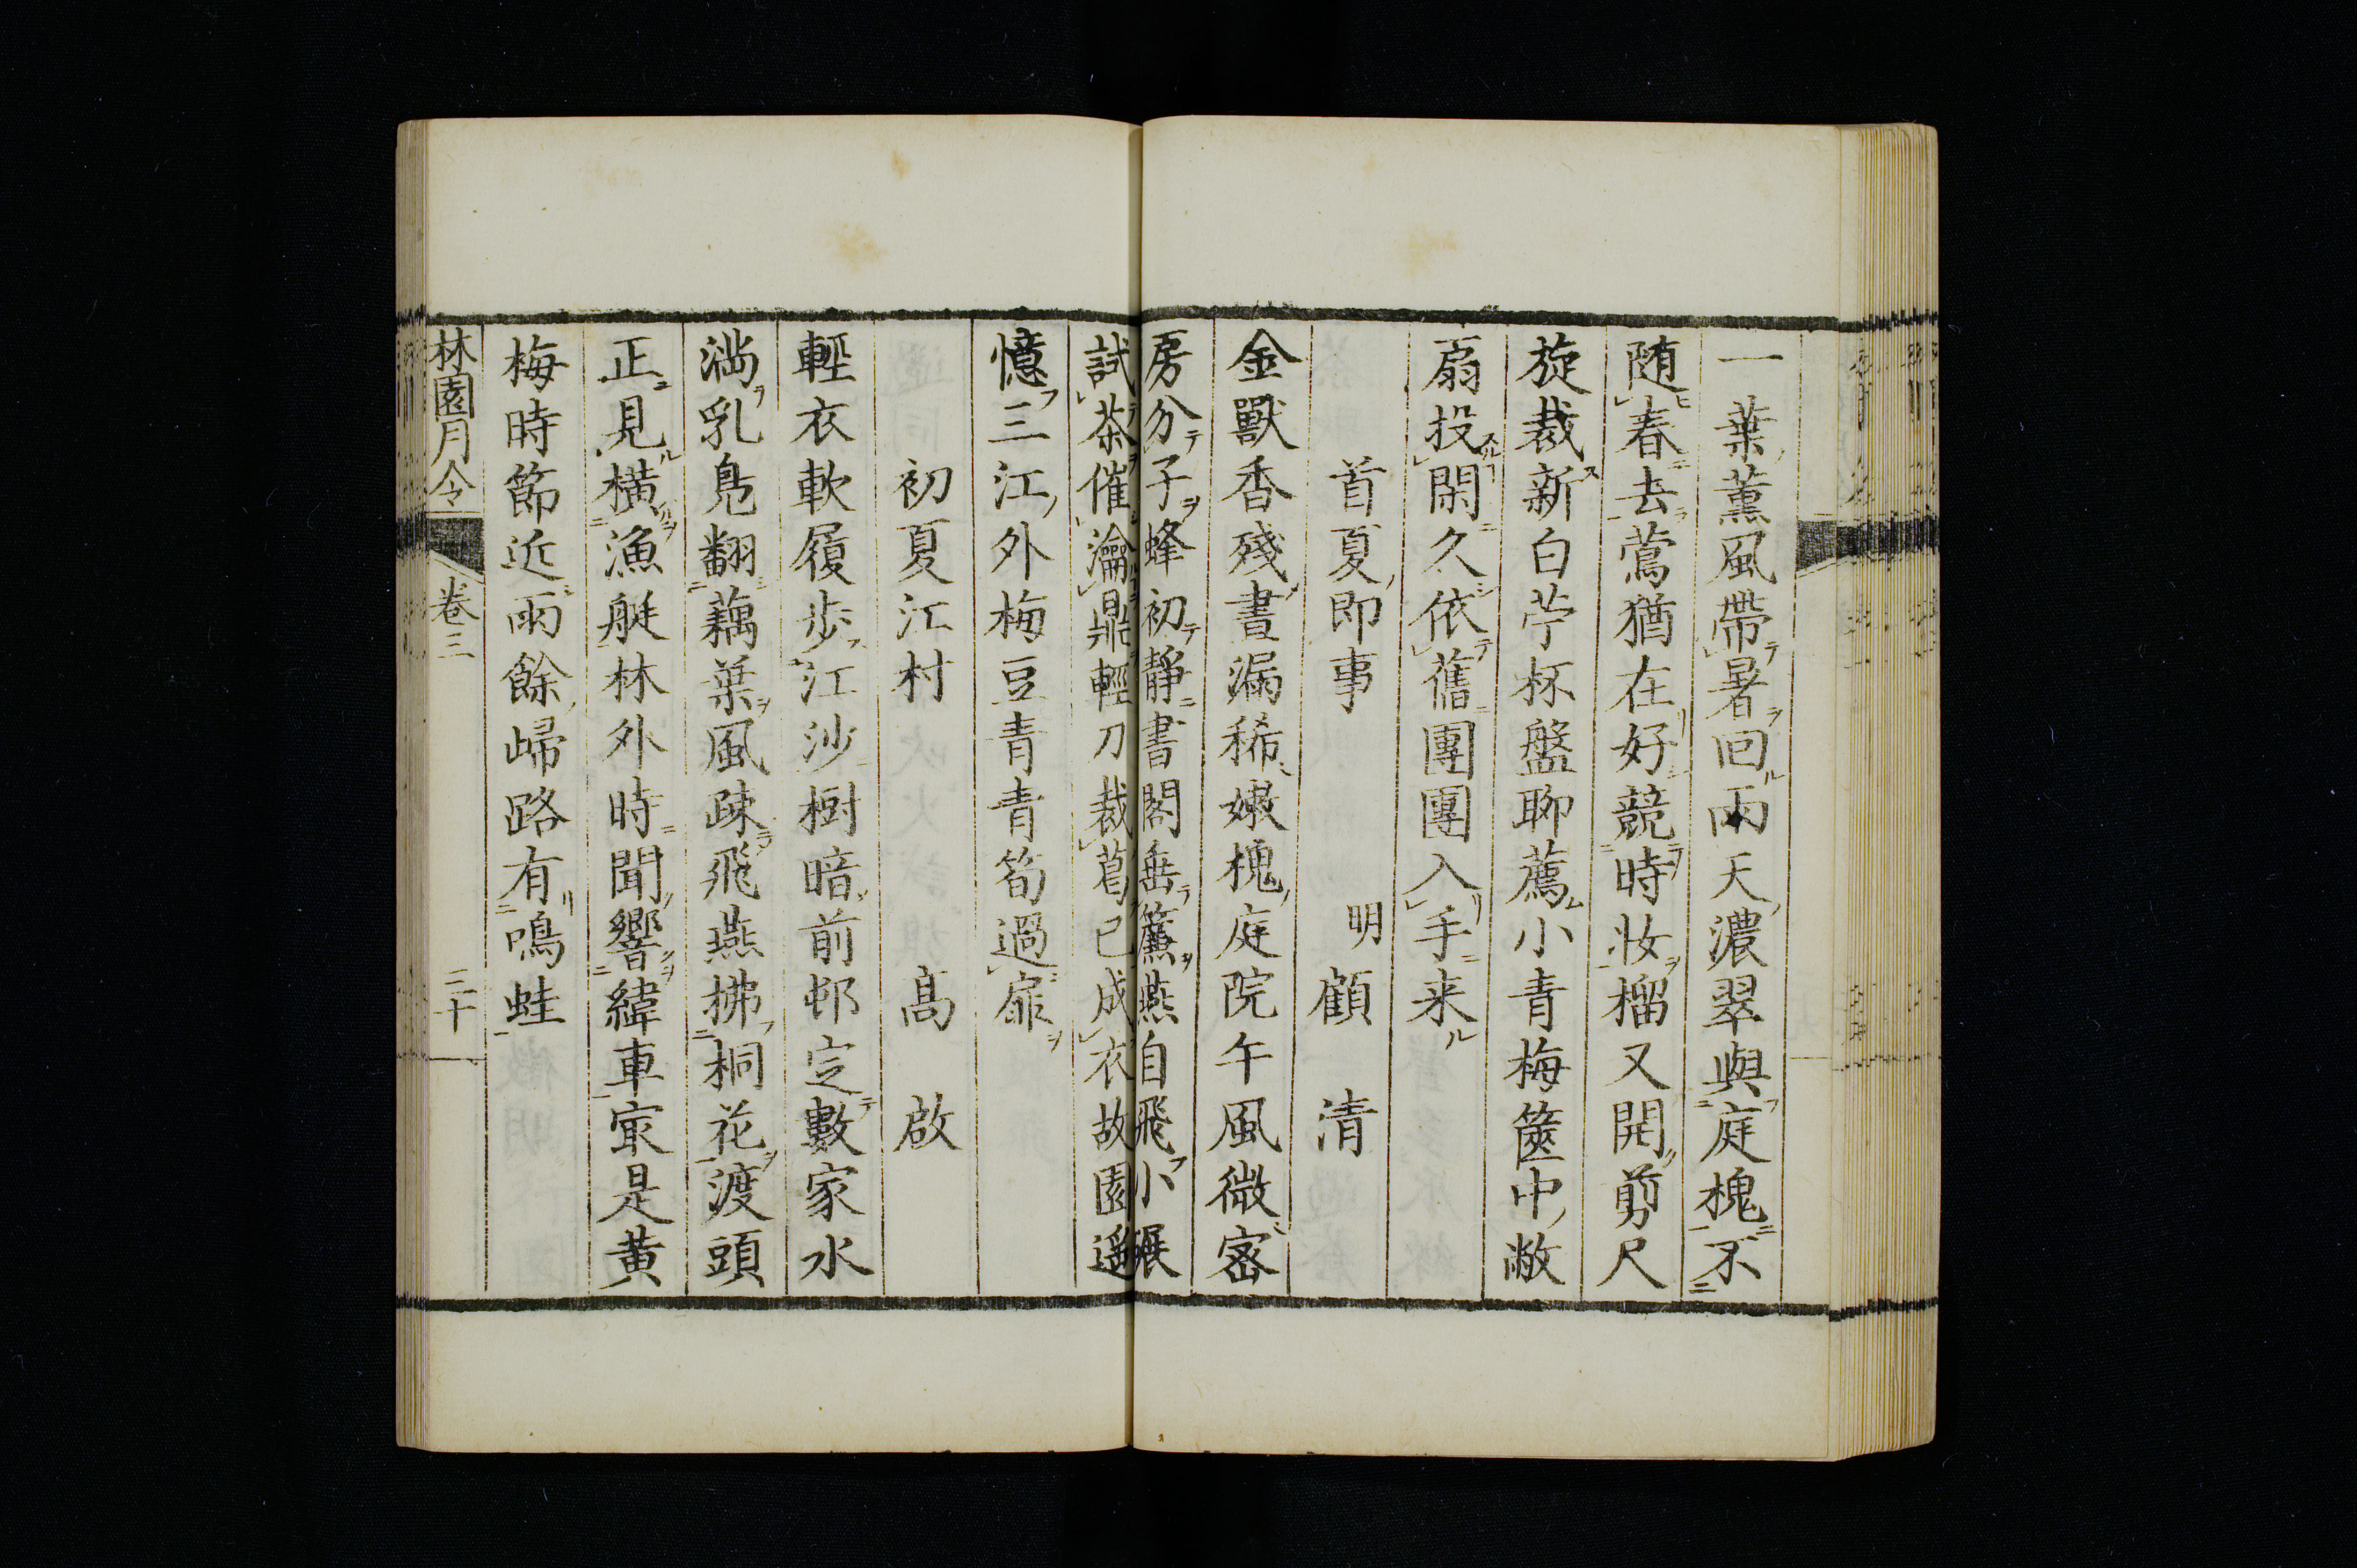 一葉薫風帶暑回雨天濃翠與庭槐不
随春去鶯猶在好競時妝榴又開剪尺
旋裁新白苧杯盤聊薦小青梅篋中敝
扇投閑久依舊團團入手来
首夏即事　明顧清
金獸香殘晝漏稀嫩槐庭院午風微宻
房分子蜂初靜書閣垂簾燕自飛小碾
試茶催瀹鼎輕刀裁葛已成衣故園遥
憶三江外梅豆青青筍過扉
初夏江村　高啟
輕衣軟履步江沙樹暗前邨定數家水
満乳鳬翻藕葉風疎飛燕拂桐花渡頭
正見橫漁艇林外時聞響緯車㝡是黄
梅時節近雨餘歸路有鳴蛙
林園月令　卷三　二十